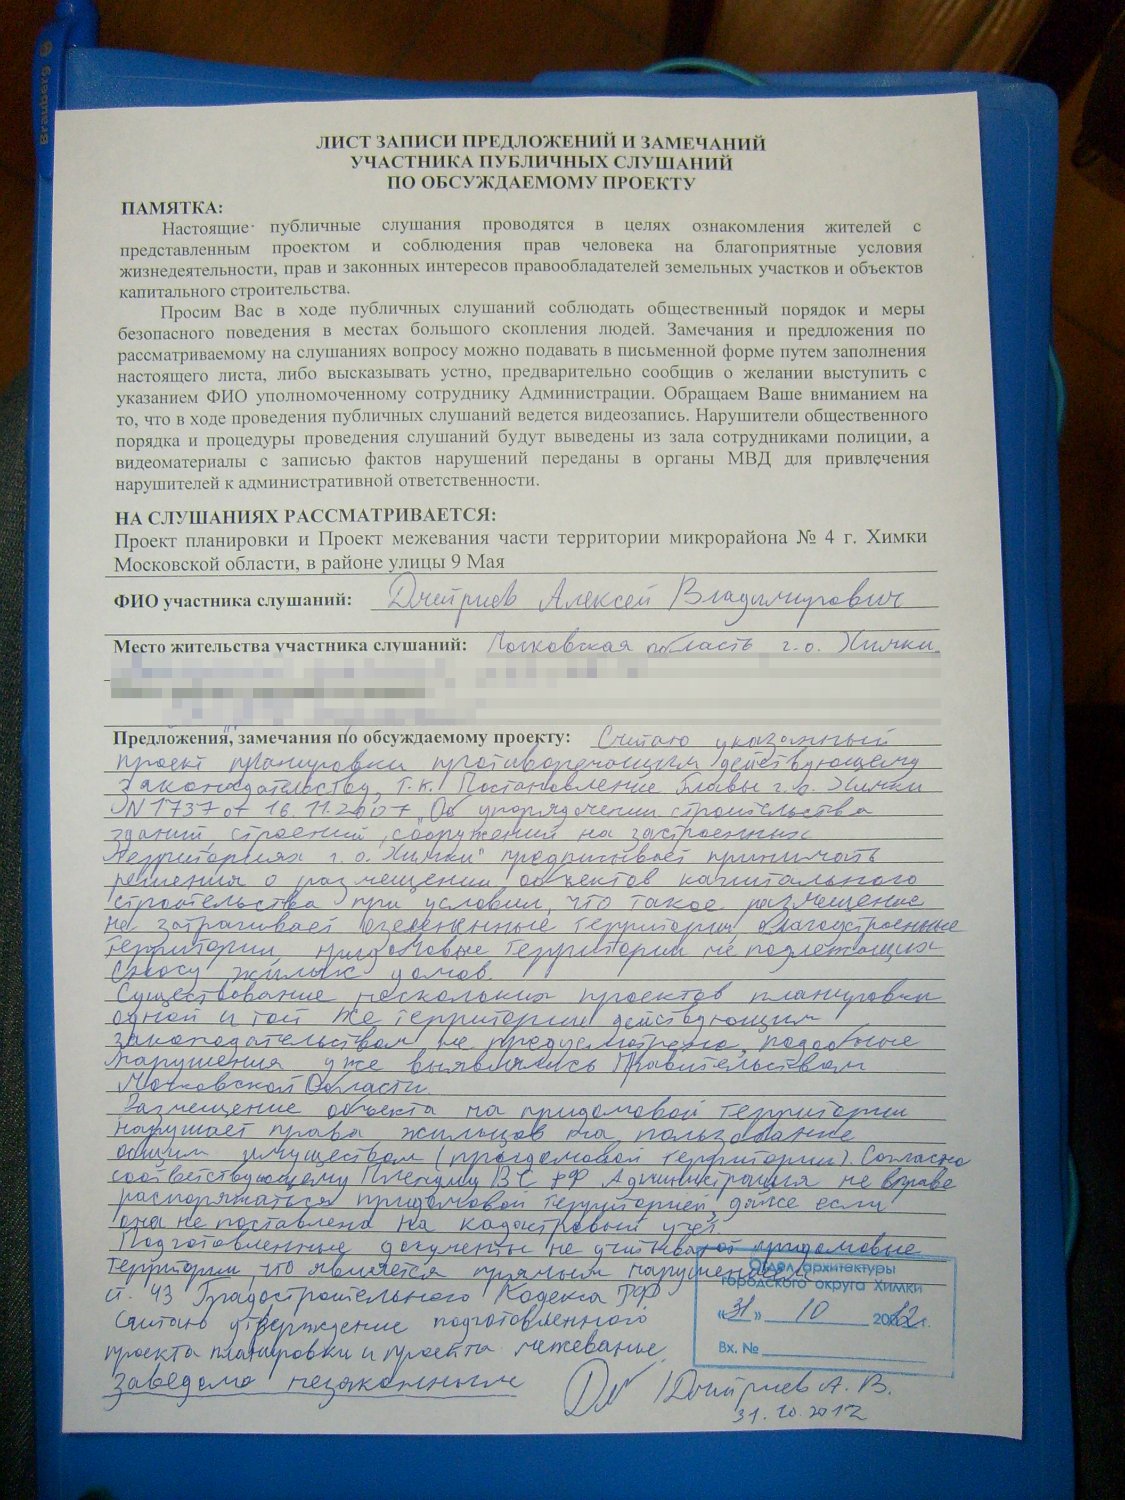 Brauberg
ЛИСТ ЗАПИСИ ПРЕДЛОЖЕНИЙ И ЗАМЕЧАНИЙ
УЧАСТНИКА ПУБЛИЧНЫХ СЛУШАНИЙ
ПО ОБСУЖДАЕМОМУ ПРОЕКТУ
ПАМЯТКА:
Настоящие публичные слушания проводятся в целях ознакомления жителей с
представленным проектом и соблюдения прав человека на благоприятные условия
жизнедеятельности, прав и законных интересов правообладателей земельных участков и объектов
капитального строительства.
Просим Вас в ходе публичных слушаний соблюдать общественный порядок и меры
безопасного поведения в местах большого скопления людей. Замечания и предложения по
рассматриваемому на слушаниях вопросу можно подавать в письменной форме путем заполнения
настоящего листа, либо высказывать устно, предварительно сообщив о желании выступить с
указанием ФИО уполномоченному сотруднику Администрации. Обращаем Ваше вниманием на
то, что в ходе проведения публичных слушаний ведется видеозапись. Нарушители общественного
порядка и процедуры проведения слушаний будут выведены из зала сотрудниками полиции, а
видеоматериалы с записью фактов нарушений переданы в органы МВД для привлечения
нарушителей к административной ответственности.
НА СЛУШАНИЯХ РАССМАТРИВАЕТСЯ:
Проект планировки и Проект межевания части территории микрорайона № 4 г. Химки
Московской области, в районе улицы 9 Мая
ФИО участника слушаний: Дмитриев Алексей Владимирович
Место жительства участника слушаний: Московская область г.о. Химки
Предложения, замечания по обсуждаемому проекту: Считаю указанный
проект планировки противоречащим действующему
законодательству, т.к. Постановление Главы г.о. Химки
N 1737 от 16.11.2007 "Об упорядочении строительства
зданий, строений, сооружений на застроенных
территориях г.о. Химки" предписывает принимать
решения о размещении объектов капитального
строительства при условии, что такое размещение
не затрагивает озелененные территории, благоустроенные
территории, придомовые территории не подлежащих
сносу жилых домов.
Существование нескольких проектов планировки
одной и той же территории действующим
законодательством не предусмотрено, подобные
нарушения уже выявлялись Правительством
Московской Области.
Размещение объекта на придомовой территории
нарушает права жильцов на пользование
общим имуществом (придомовой территории). Согласно
соответствующему Пленуму ВС РФ Администрация не вправе
распоряжаться придомовой территорией, даже если
она не поставлена на кадастровый учет
Подготовленные документы не учитывают придомовые
территории, что является прямым нарушением
ст. 43 Градостроительного Кодекса РФ
Считаю утверждение подготовленного
проекта планировки и проекта межевание
заведомо незаконным
Отдел архитектуры
городского округа Химки
«31» 10 2012г.
Вх. №
/Дмитриев А. В.
31.10.2012